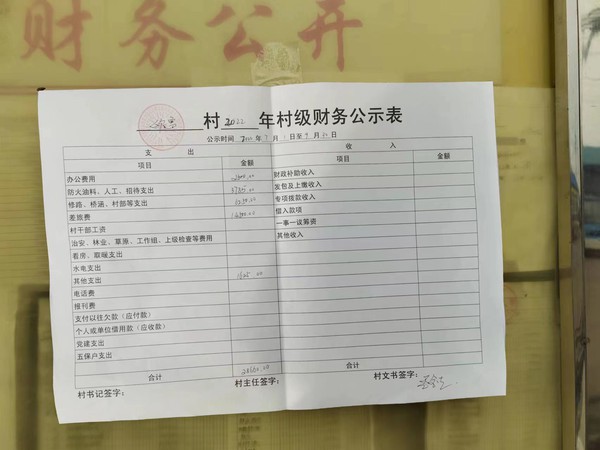 财务公开
村2022年村级财务公示表
公示时间
支 出 收 入
项目 金额 项目 金额
办公费用 财政补助收入
防火油料、人工、招待支出 发包及上缴收入
修路、桥涵、村部等支出 专项拨款收入
差旅费 借入款项
村干部工资 一事一议筹资
治安、林业、草原、工作组、上级检查等费用 其他收入
看房、取暖支出
水电支出
其他支出
电话费
报刊费
支付以往欠款（应付款）
个人或单位借用款（应收款）
党建支出
五保户支出
合计 合计
村书记签字： 村主任签字： 村文书签字：